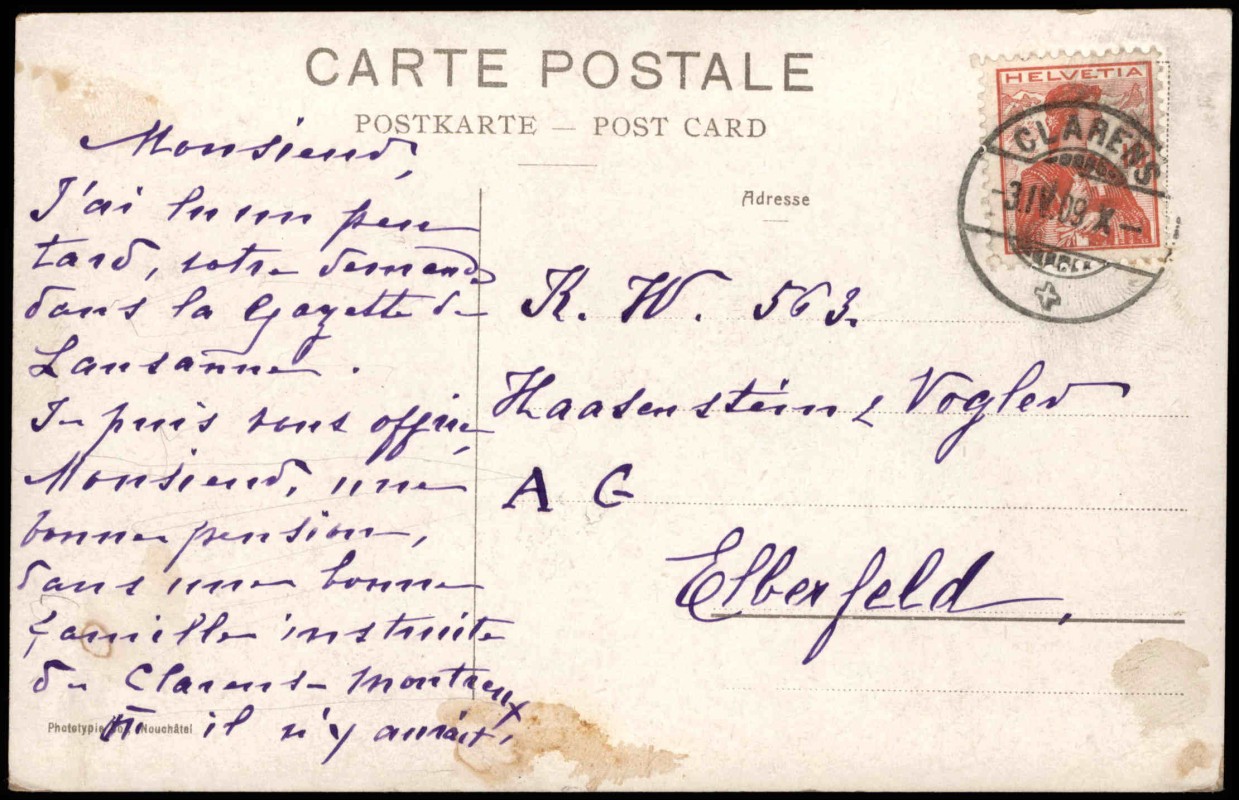 CARTE POSTALE
POSTKARTE — POST CARD
Adresse
HELVETIA
CLARENS
-3.IV.09.X-
Monsieur,
J'ai lu un peu
tard, votre demande
dans la Gazette de
Lausanne.
Je puis vous offrir,
Monsieur, une
bonne pension,
dans une bonne
famille instruite
de Clarens-Montreux
il n'y aurait,
K. W. 563.
Haasenstein & Vogler
A G
Elberfeld,
Phototypie Neuchâtel